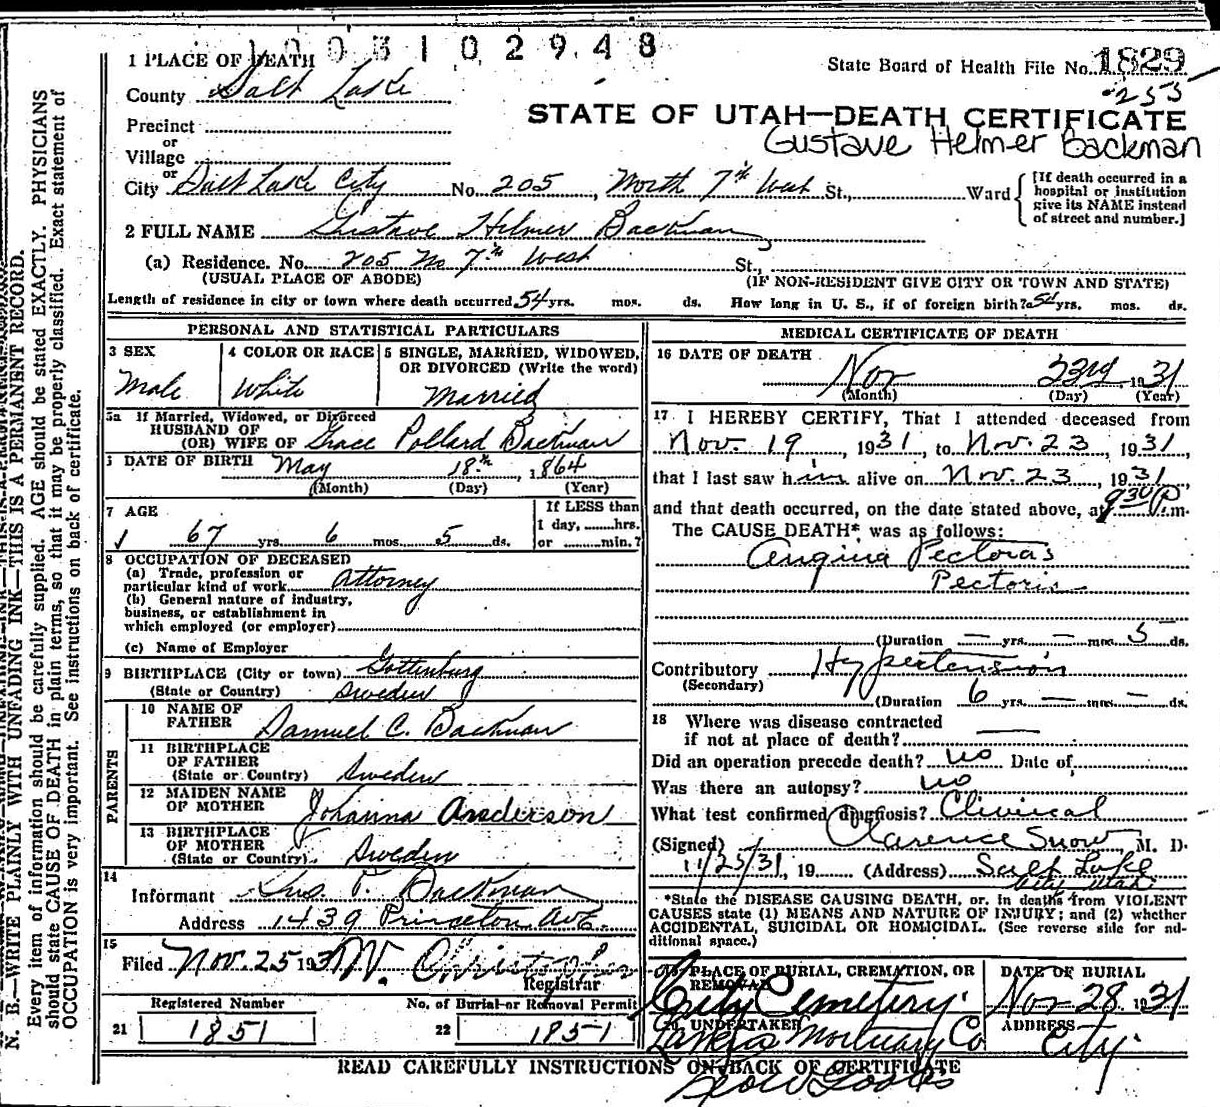 1003102948
1 PLACE OF DEATH
State Board of Health File No. 1829
County Salt Lake
253
STATE OF UTAH—DEATH CERTIFICATE
Precinct
Gustave Helmer Backman
or
Village
or
City Salt Lake City No. 205, North 7th West St., Ward
[If death occurred in a hospital or institution give its NAME instead of street and number.]
2 FULL NAME Gustave Hilmer Backman
(a) Residence. No. 205 No 7th West St.,
(USUAL PLACE OF ABODE) (IF NON-RESIDENT GIVE CITY OR TOWN AND STATE)
Length of residence in city or town where death occurred 54 yrs. mos. ds. How long in U. S., if of foreign birth? 54 yrs. mos. ds.
PERSONAL AND STATISTICAL PARTICULARS
3 SEX
Male
4 COLOR OR RACE
White
5 SINGLE, MARRIED, WIDOWED, OR DIVORCED (Write the word)
Married
5a If Married, Widowed, or Divorced
HUSBAND OF
(OR) WIFE OF Grace Pollard Backman
6 DATE OF BIRTH May 18th, 1864
(Month) (Day) (Year)
7 AGE
67 yrs. 6 mos. 5 ds.
If LESS than
1 day, hrs.
or min.?
8 OCCUPATION OF DECEASED
(a) Trade, profession or
particular kind of work Attorney
(b) General nature of industry,
business, or establishment in
which employed (or employer)
(c) Name of Employer
9 BIRTHPLACE (City or town) Gottenburg
(State or Country) Sweden
PARENTS
10 NAME OF
FATHER Samuel C. Backman
11 BIRTHPLACE
OF FATHER
(State or Country) Sweden
12 MAIDEN NAME
OF MOTHER Johanna Anderson
13 BIRTHPLACE
OF MOTHER
(State or Country) Sweden
14
Informant Gus P. Backman
Address 1439 Princeton Ave.
15
Filed Nov. 25 1931 W. Christopherson
Registrar
Registered Number
21 1851
No. of Burial or Removal Permit
22 1851
MEDICAL CERTIFICATE OF DEATH
16 DATE OF DEATH
Nov 23rd 1931
(Month) (Day) (Year)
17 I HEREBY CERTIFY, That I attended deceased from
Nov. 19, 1931, to Nov. 23, 1931
that I last saw him alive on Nov. 23, 1931
and that death occurred, on the date stated above, at 9 30 P. m.
The CAUSE DEATH* was as follows:
Angina Pectoras
Pectoris
(Duration — yrs. — mos. 5 ds.
Contributory Hypertension
(Secondary)
(Duration 6 yrs. — mos. — ds.
18 Where was disease contracted
if not at place of death? —
Did an operation precede death? no Date of
Was there an autopsy? no
What test confirmed diagnosis? Clinical
(Signed) Clarence Snow M. D.
11/25/31, 19 (Address) Salt Lake
City Utah
*State the DISEASE CAUSING DEATH, or, in deaths from VIOLENT
CAUSES state (1) MEANS AND NATURE OF INJURY; and (2) whether
ACCIDENTAL, SUICIDAL OR HOMICIDAL. (See reverse side for additional space.)
PLACE OF BURIAL, CREMATION, OR
REMOVAL
City Cemetery
DATE OF BURIAL
Nov 28 1931
20 UNDERTAKER
Mortuary Co
ADDRESS
City
READ CAREFULLY INSTRUCTIONS ON BACK OF CERTIFICATE
N. B.—WRITE PLAINLY WITH UNFADING INK—THIS IS A PERMANENT RECORD.
Every item of information should be carefully supplied. AGE should be stated EXACTLY. PHYSICIANS
should state CAUSE OF DEATH in plain terms, so that it may be properly classified. Exact statement of
OCCUPATION is very important. See instructions on back of certificate.